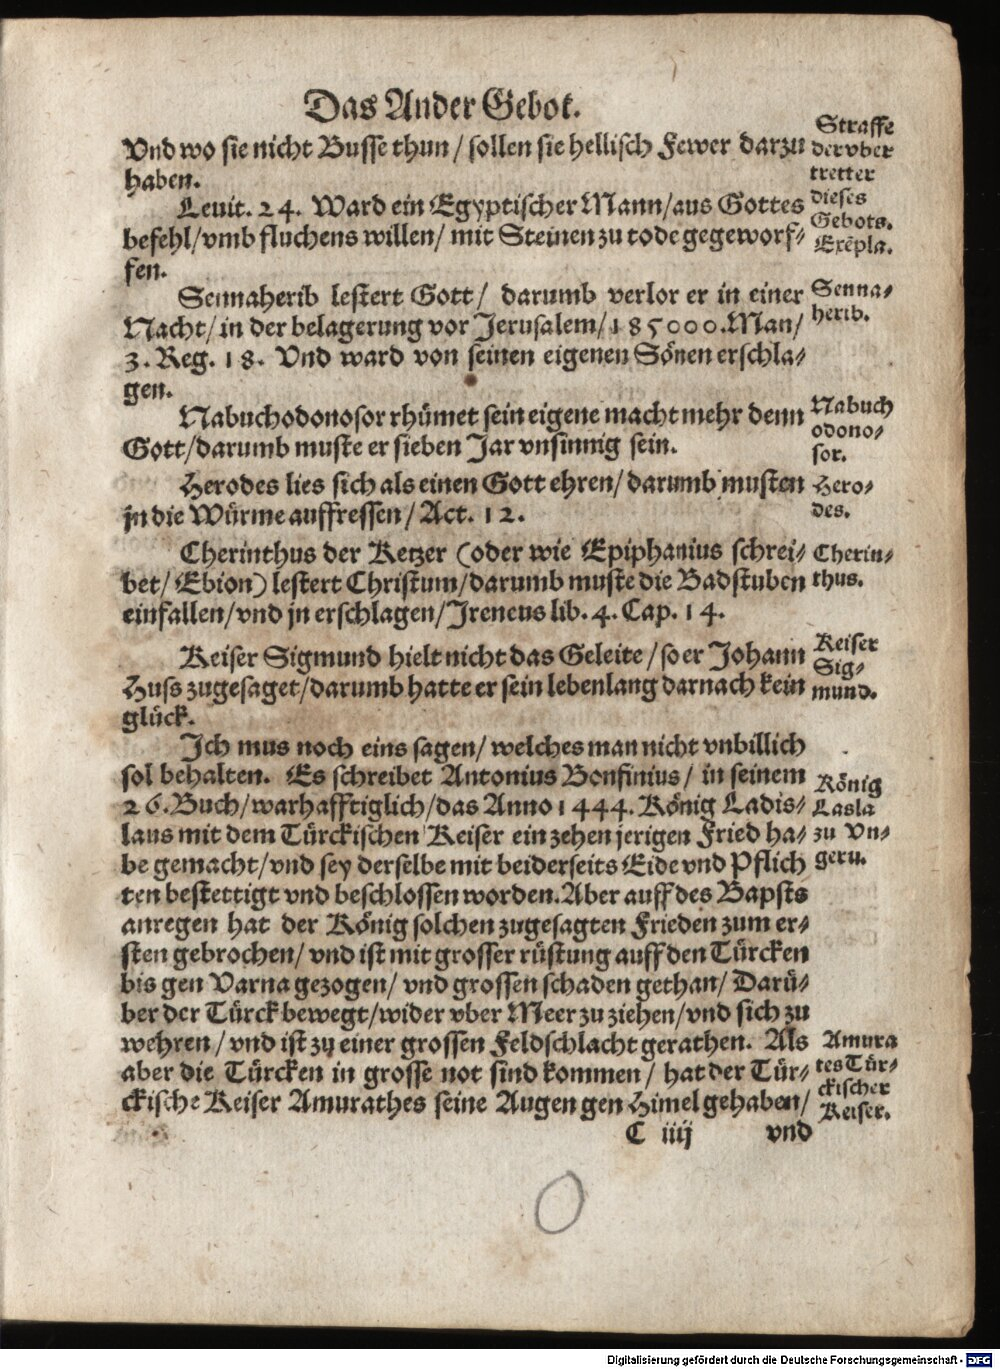 Das Ander Gebot.
Vnd wo sie nicht Busse thun / sollen sie hellisch Fewer darzu
haben.
Straffe
der vber
tretter
dieses
Gebots.
Exẽpla.
Leuit. 24. Ward ein Egyptischer Mann/aus Gottes
befehl/vmb fluchens willen/ mit Steinen zu tode gegeworf⸗
fen.
Sennaherib lestert Gott/ darumb verlor er in einer
Nacht/in der belagerung vor Jerusalem/185000.Man/
3. Reg. 18. Vnd ward von seinen eigenen Sönen erschla⸗
gen.
Senna⸗
herib.
Nabuchodonosor rhümet sein eigene macht mehr denn
Gott/darumb muste er sieben Jar vnsinnig sein.
Nabuch
odono⸗
sor.
Herodes lies sich als einen Gott ehren/ darumb musten
jn die Würme auffressen/ Act. 12.
Hero⸗
des.
Cherinthus der Ketzer (oder wie Epiphanius schrei⸗
bet/ Ebion) lestert Christum/darumb muste die Badstuben
einfallen/vnd jn erschlagen/Ireneus lib. 4. Cap. 14.
Cherin⸗
thus.
Keiser Sigmund hielt nicht das Geleite/so er Johann
Huss zugesaget/darumb hatte er sein lebenlang darnach kein
glück.
Keiser
Sig⸗
mund.
Ich mus noch eins sagen/ welches man nicht vnbillich
sol behalten. Es schreibet Antonius Bonfinius/ in seinem
26.Buch/warhafftiglich/das Anno 1444. König Ladis⸗
laus mit dem Türckischen Keiser ein zehen jerigen Fried ha⸗
be gemacht/vnd sey derselbe mit beiderseits Eide vnd Pflich
ten bestettigt vnd beschlossen worden. Aber auff des Bapsts
anregen hat der König solchen zugesagten Frieden zum er⸗
sten gebrochen/ vnd ist mit grosser rüstung auff den Türcken
bis gen Varna gezogen/ vnd grossen schaden gethan/ Darü⸗
ber der Türck bewegt/wider vber Meer zu ziehen/vnd sich zu
wehren / vnd ist zu einer grossen Feldschlacht gerathen. Als
aber die Türcken in grosse not sind kommen/ hat der Tür⸗
ckische Keiser Amurathes seine Augen gen Himel gehaben/
König
Lasla
zu Vn⸗
gern.
Amura
tes Tür⸗
ckischer
Keiser.
C iiij vnd
Digitalisierung gefördert durch die Deutsche Forschungsgemeinschaft - DFG